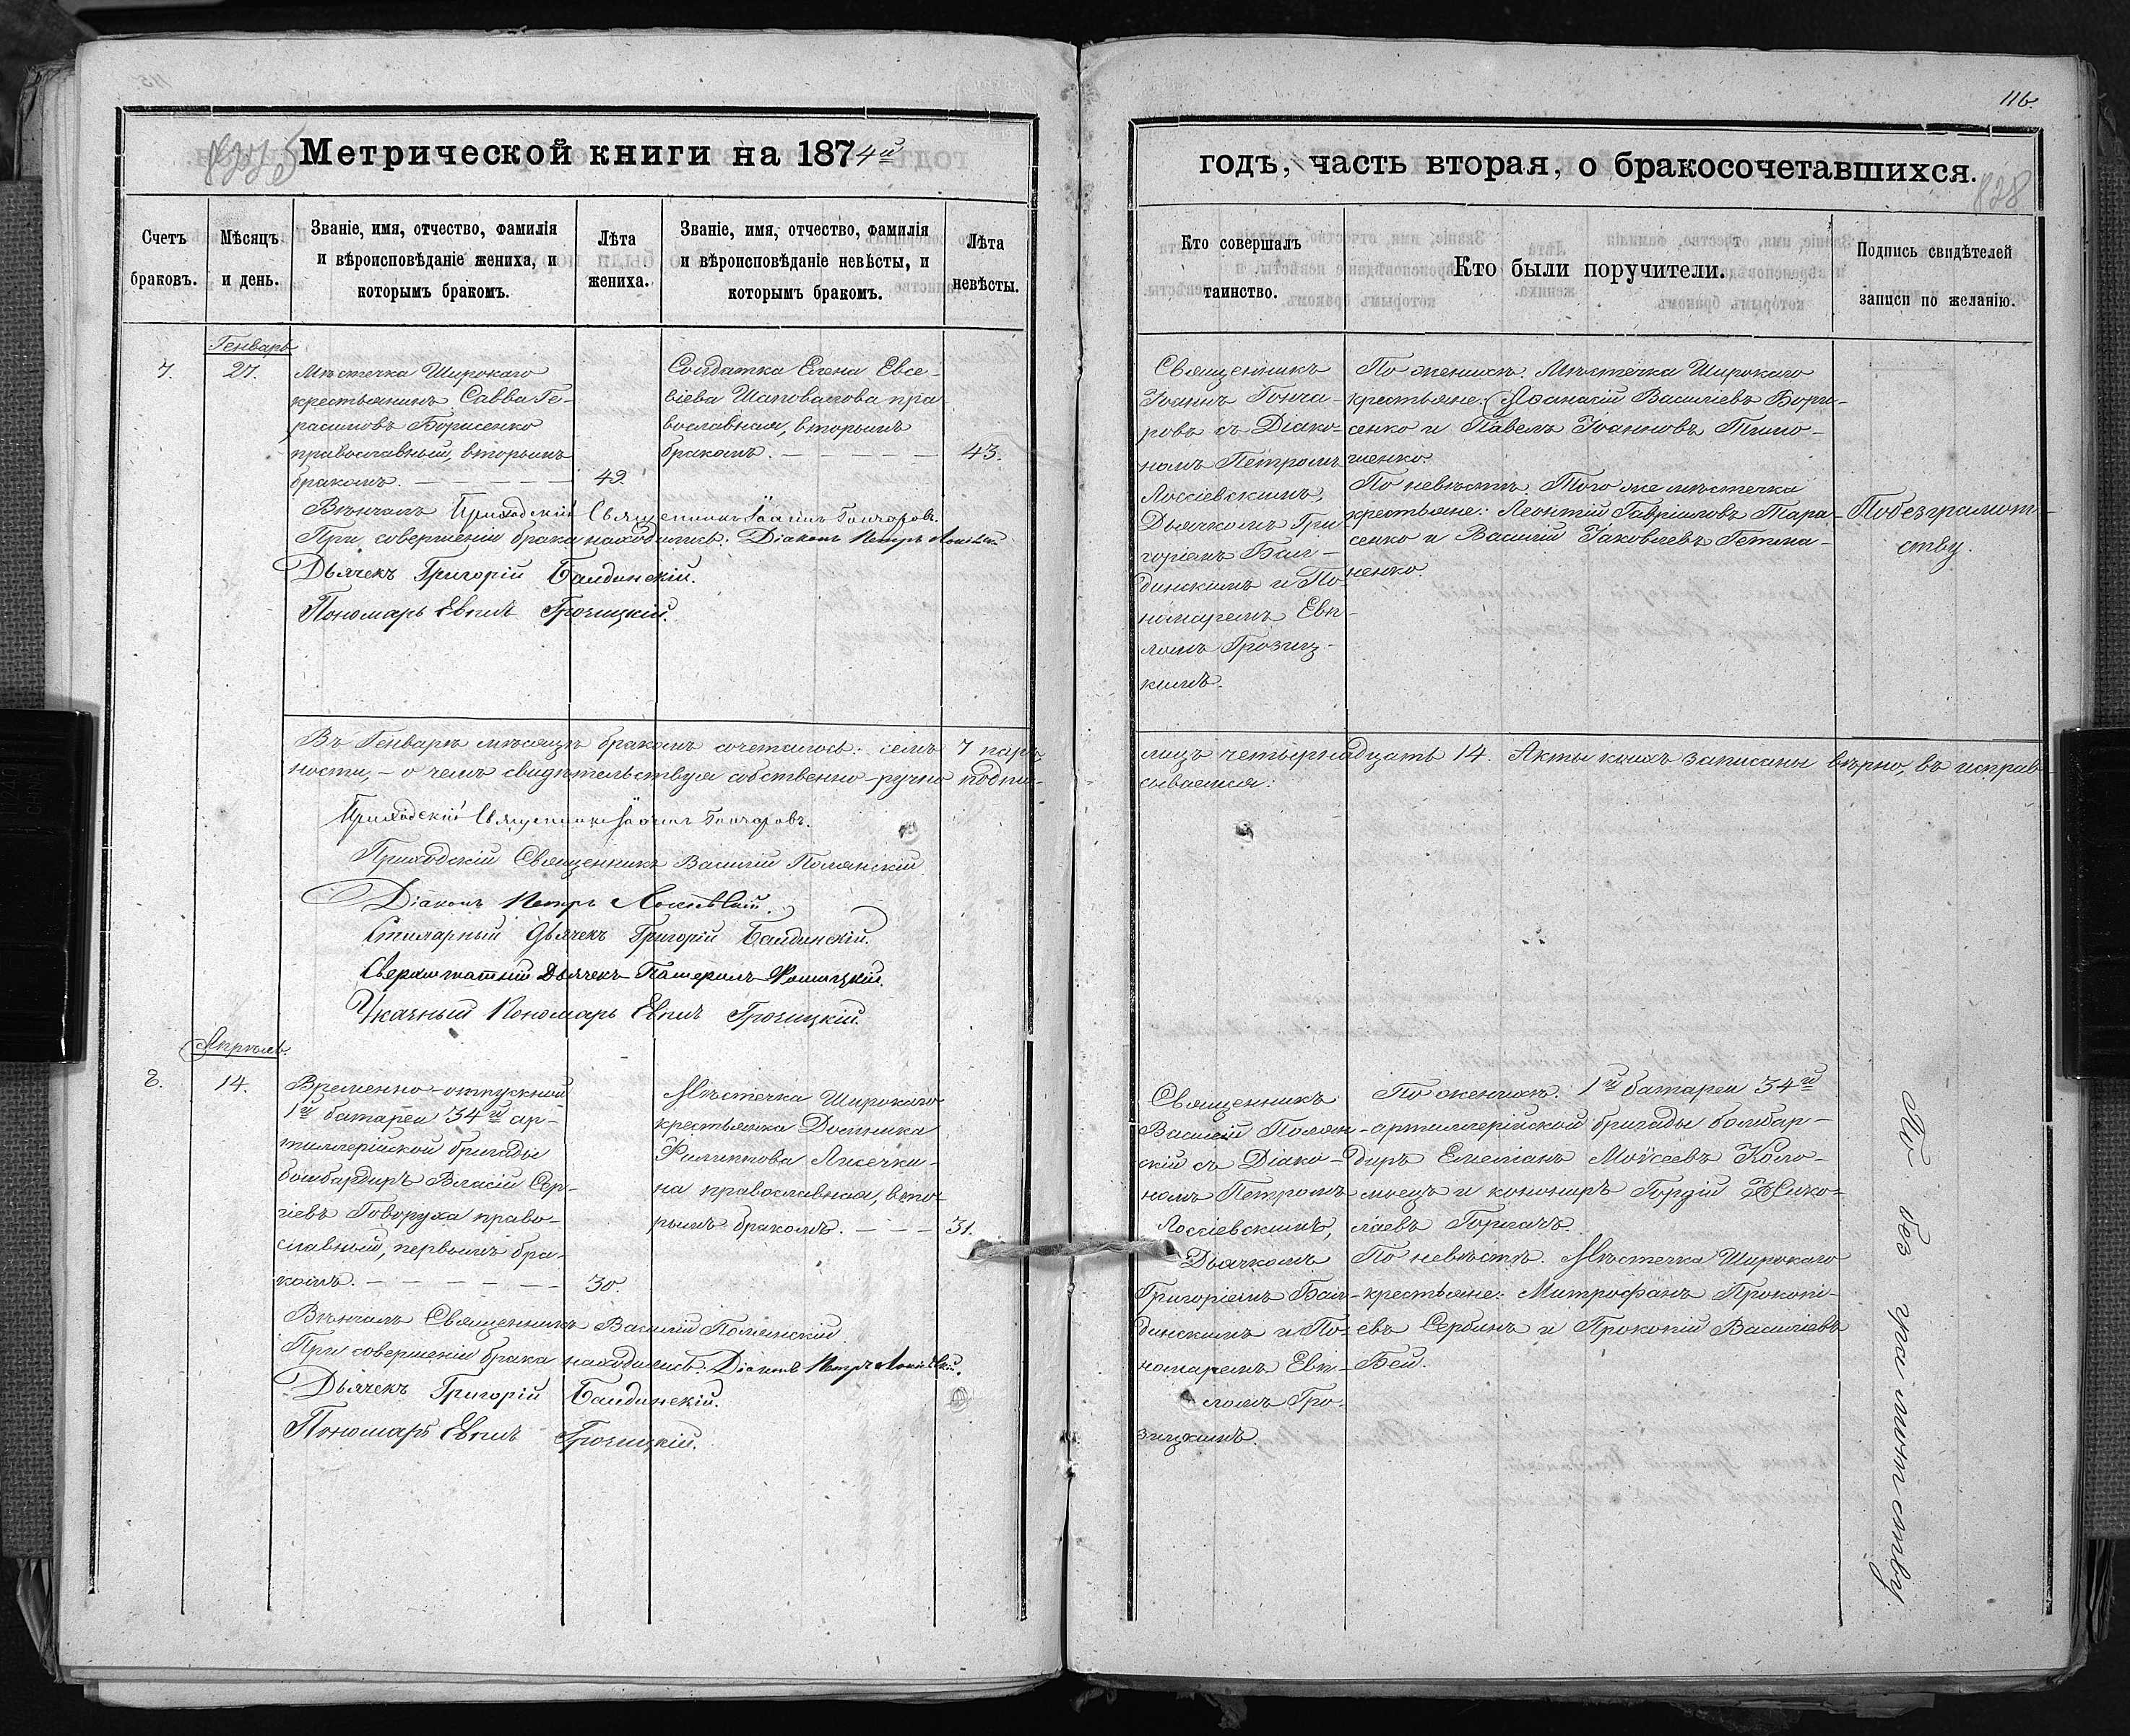 116.
Метрической книги на 1874й
годъ, часть вторая, о бракосочетавшихся.
828
Счетъ браковъ.
Мѣсяцъ и день.
Званіе, имя, отчество, фамилія
и вѣроисповѣданіе жениха, и
которымъ бракомъ.
Лѣта
жениха.
Званіе, имя, отчество, фамилія
и вѣроисповѣданіе невѣсты, и
которымъ бракомъ.
Лѣта
невѣсты.
Кто совершалъ
таинство.
Кто были поручители.
Подпись свидѣтелей
записи по желанію.
Генварь
7.
27.
Мѣстечка Широкаго
крестьянинъ Савва Ге-
расимовъ Борисенко
православный, вторымъ
бракомъ. — — — — —
49.
Солдатка Елена Евсе-
віева Шаповалова пра
вославная, вторымъ
бракомъ. — — — — —
43.
Вѣнчалъ Приходскій Священникъ Іоаннъ Гончаровъ.
При совершеніи брака находились: Діаконъ Петръ Лоссіевскій
Дьячекъ Григорій Балдинскій.
Пономарь Евпилъ Грозицкій.
Священникъ
Іоаннъ Гонча-
ровъ съ Діако-
номъ Петромъ
Лоссіевскимъ,
Дьячкомъ Гри
горіемъ Бал-
динскимъ и По
номаремъ Евп-
ломъ Грозиц-
кимъ.
По женихѣ: Мѣстечка Широкаго
крестьяне: Аѳанасій Васильевъ Бори-
сенко и Павелъ Іоанновъ Тимо-
шенко.
По невѣстѣ: Того же мѣстечка
крестьяне: Леонтій Гавріиловъ Тара-
сенко и Василій Іаковлевъ Гетма-
ненко.
По безграмот-
ству.
Въ Генварѣ мѣсяцѣ бракомъ сочеталось: семь 7 паръ,
лицъ четырнадцать 14. Акты коихъ записаны вѣрно, въ исправ-
ности, – о чемъ свидѣтельствуя собственно-ручно подпи-
сываемся:
Приходскій Священникъ Іоаннъ Гончаровъ.
Приходскій Священникъ Василій Полянскій.
Діаконъ Петръ Лоссіевскій.
Дьячекъ Григорій Балдинскій.
Сверхштатный Дьячекъ
Указный Пономарь Евпилъ Грозицкій.
Апрѣль.
8.
14.
Временно-отпускной
1й батареи 34й ар-
тиллерійской бригады
бомбардиръ Власій Сер-
гіевъ Говоруха право-
славный, первымъ бра-
комъ. — — — — — —
30.
Мѣстечка Широкаго
крестьянка Домника
Филиппова Лисечки-
на православная, вто-
рымъ бракомъ. — — —
31.
Вѣнчалъ Священникъ Василій Полянскій.
При совершеніи брака находились: Діаконъ Петръ Лоссіевскій.
Дьячекъ Григорій Балдинскій.
Пономарь Евпилъ Грозицкій.
Священникъ
Василій Полян-
скій съ Діако-
номъ Петромъ
Лоссіевскимъ,
Дьячкомъ
Григоріемъ Бал-
динскимъ и По-
номаремъ Евп-
ломъ Гро-
зицкимъ.
По женихѣ: 1й батареи 34й
артиллерійской бригады бомбар-
диръ Емеліанъ Моѵсеевъ Коло-
моецъ и кононирѣ Гордій Нико-
лаевъ Горпачъ.
По невѣстѣ: Мѣстечка Широкаго
крестьяне: Митрофанъ Прокопі-
евъ Сербинъ и Прокопій Василіевъ
Бей.
По без грамотству